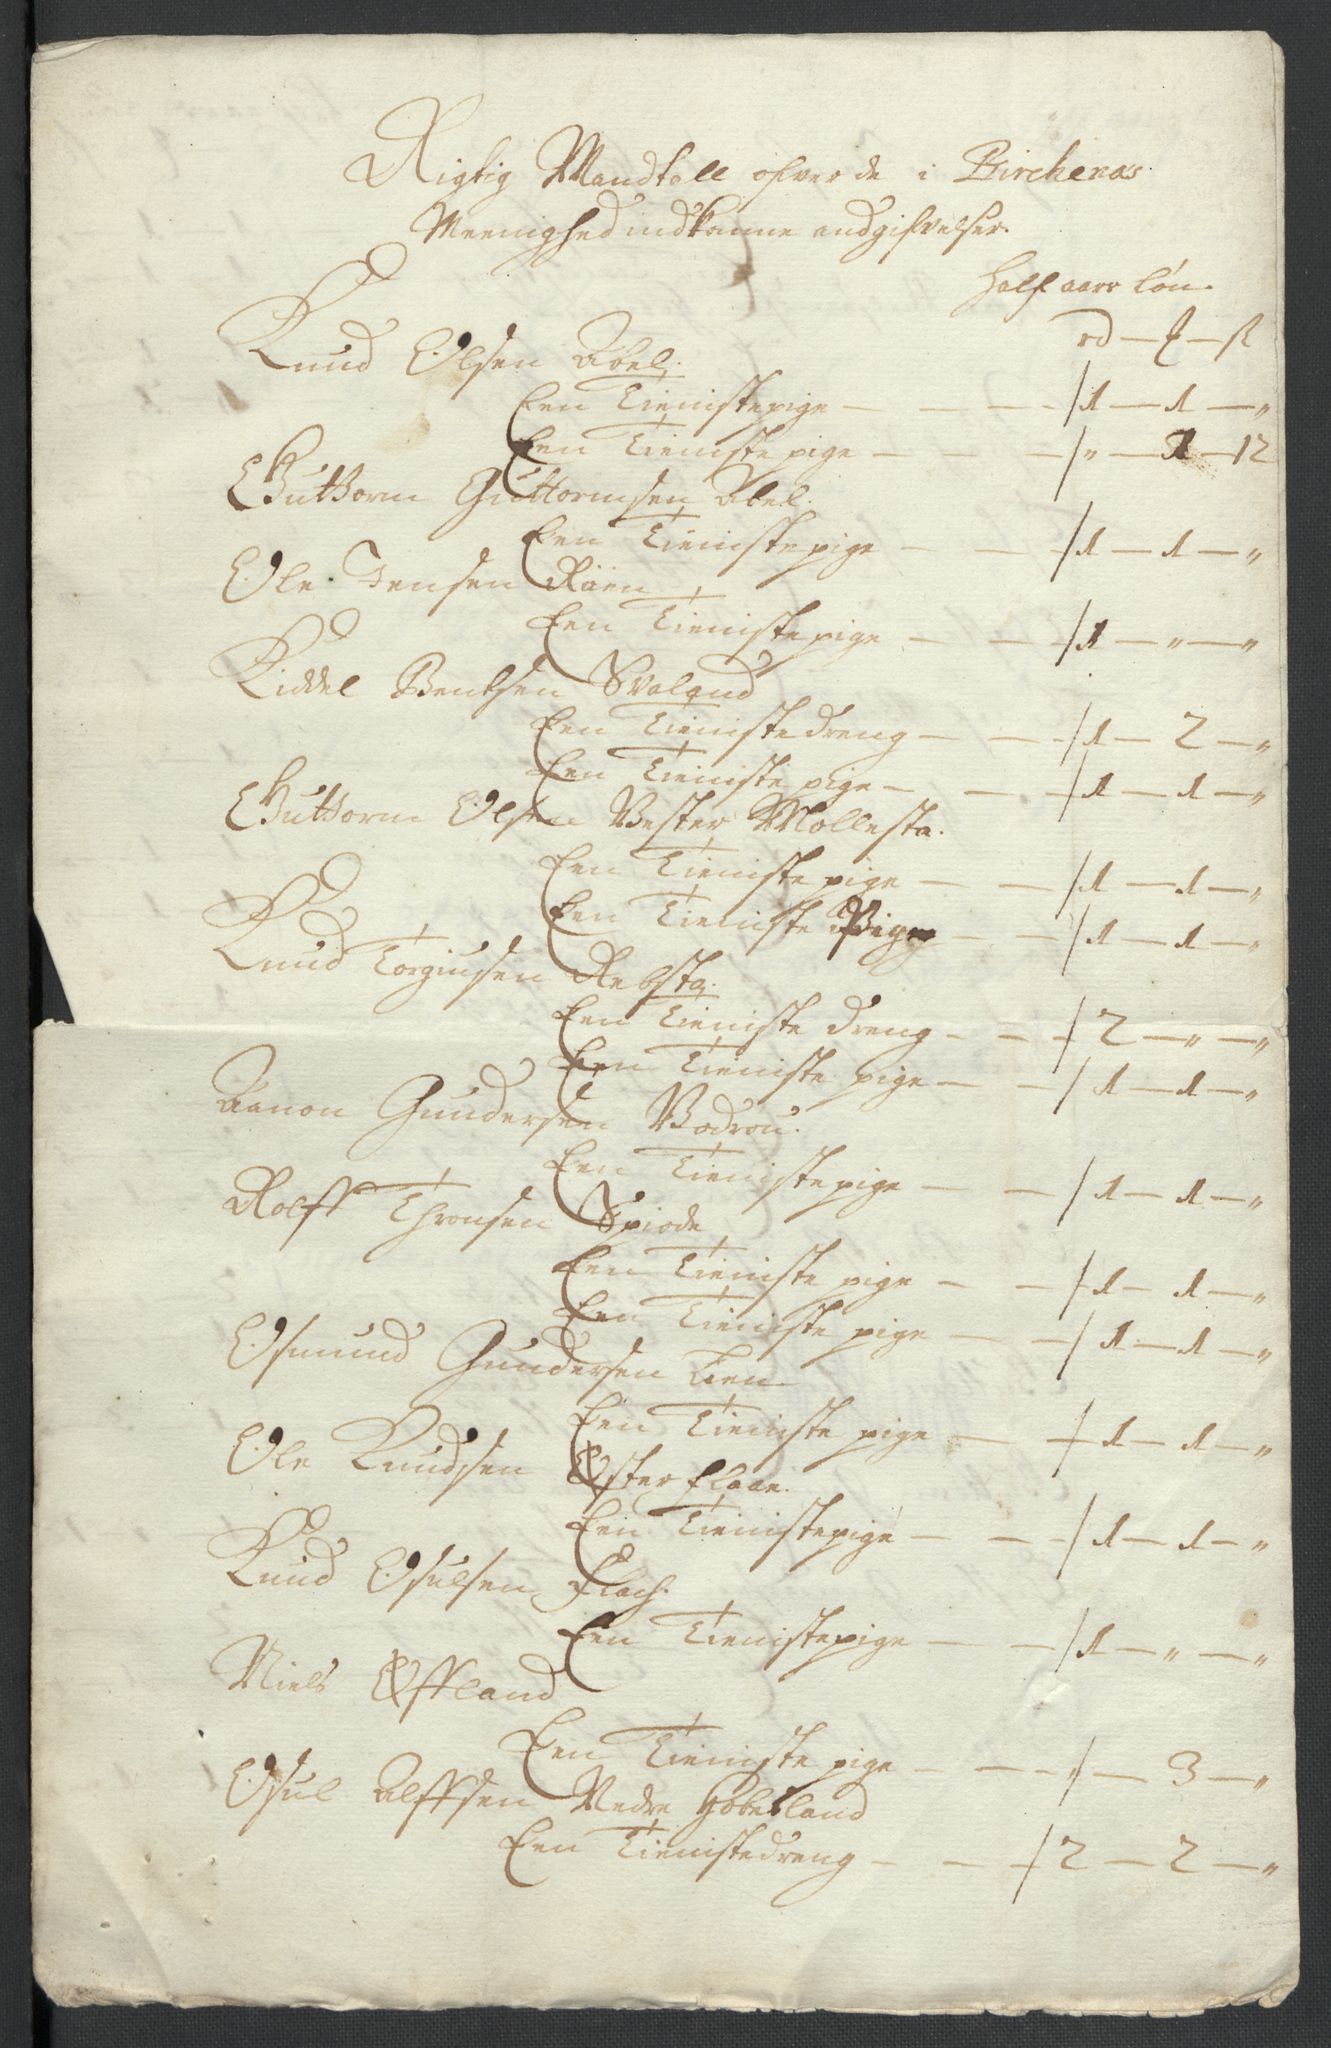 Rigtig Mandtall ofver de i Birchenas
Meenighed indkomne andgifvelser.
Half aars Løn.
rd — ß
Knud Olsen Abel.
Een Tieniste pige — — — 1 — 1 — "
Een Tieniste pige — — — " — 2 — 12
Guttorm Guttormsen Abel.
Een Tieniste pige — — 1 — 1 — "
Ole Jensen Røien
Een Tieniste pige — — 1 — " — "
Kiddel Bentsen Svaland
Een Tieniste dreng — — 1 — 2 — "
Een Tieniste pige — — 1 — 1 — "
Guttorm Olsen Vester Mollesta.
Een Tieniste pige — — 1 — 1 — "
Een Tieniste Pige — — 1 — 1 — "
Knud Torgiusen Rebsta.
Een Tieniste dreng — — 2 — " — "
Een Tieniste pige — — 1 — 1 — "
Aanon Gundersen Bodrou.
Een Tieniste pige — — 1 — 1 — "
Rolff Thronsen Spiode
Een Tieniste pige — — 1 — 1 — "
Een Tieniste pige — — 1 — 1 — "
Osmund Gundersen Lien
Een Tieniste pige — — 1 — 1 — "
Ole Knudsen Øster Flaae.
Een Tieniste pige — — 1 — 1 — "
Knud Osulsen Flach.
Een Tieniste pige — — 1 — " — "
Niels Øffland
Een Tieniste pige — — " — 3 — "
Osul Alffsen Nedre Hobesland
Een Tieniste dreng — — 2 — 2 — "